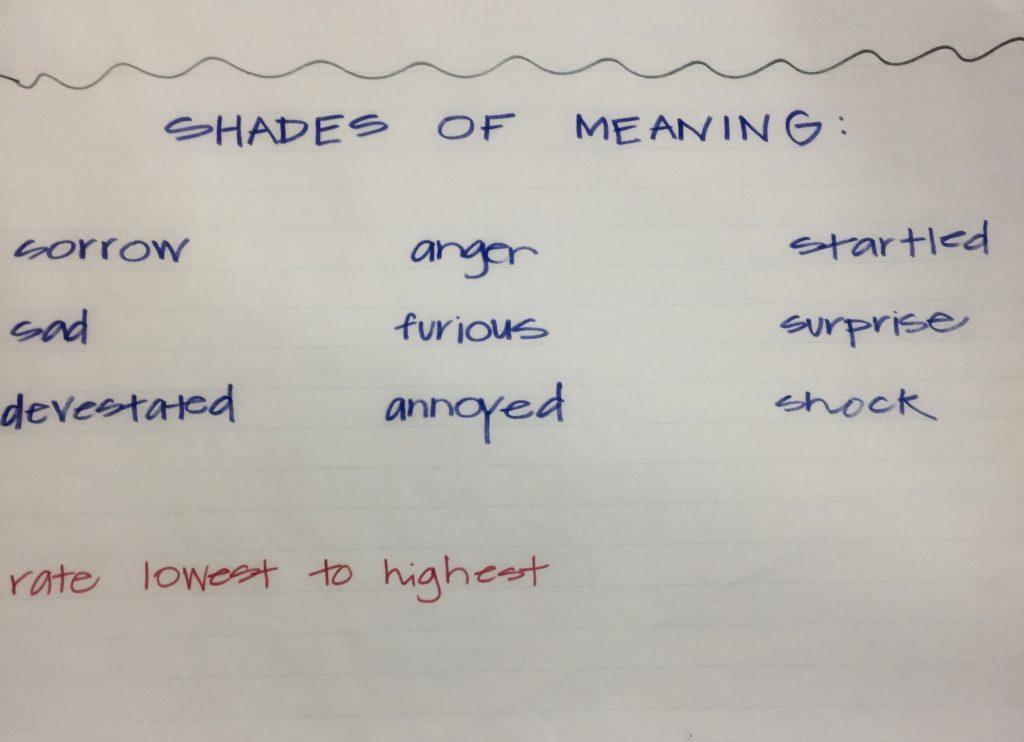 SHADES OF MEANING:
sorrow anger startled
sad furious surprise
devestated annoyed shock
rate lowest to highest